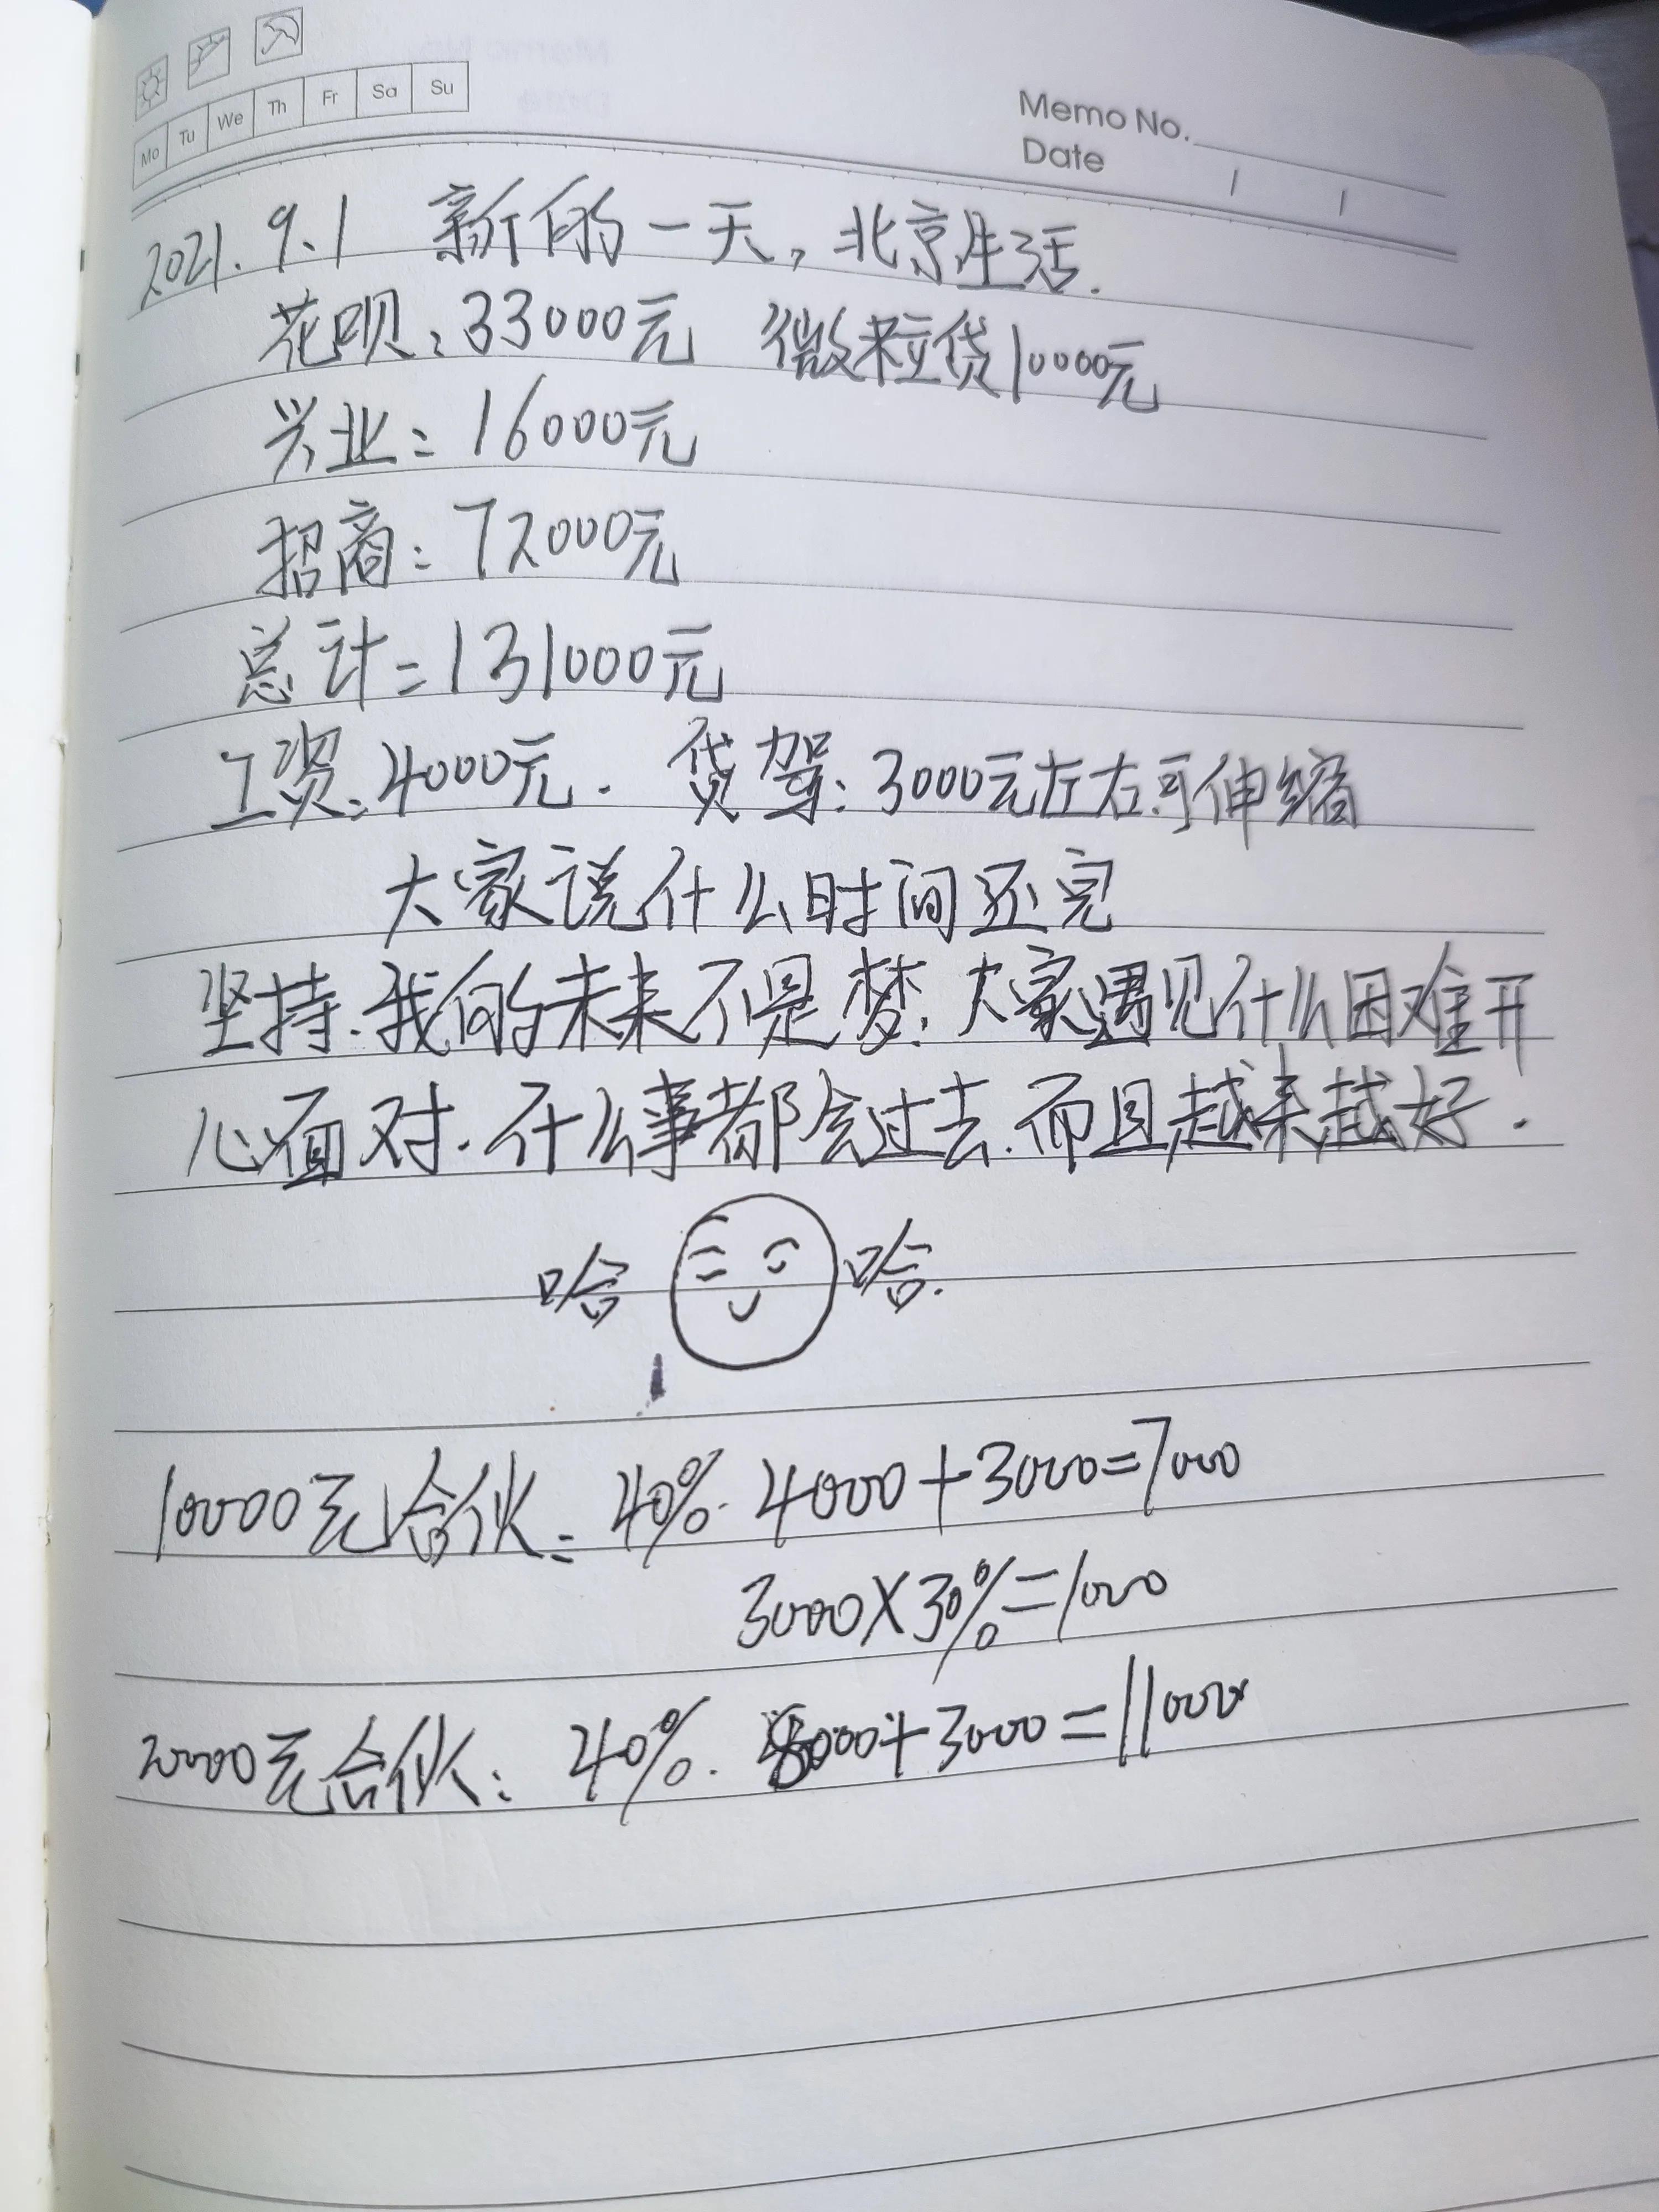 Mo Tu We Th Fr Sa Su
Memo No.
Date / /
2021.9.1 新的一天，北京生活.
花呗：33000元 微粒贷10000元
兴业：16000元
招商：72000元
总计=131000元
工资：4000元. 货驾：3000元左右可伸缩
大家说什么时间还完
坚持.我的未来不是梦.大家遇见什么困难开
心面对.什么事都会过去.而且越来越好.
哈 哈.
10000元合伙：40% 4000+3000=7000
3000×30%=1000
20000元合伙：40%. 8000+3000=11000